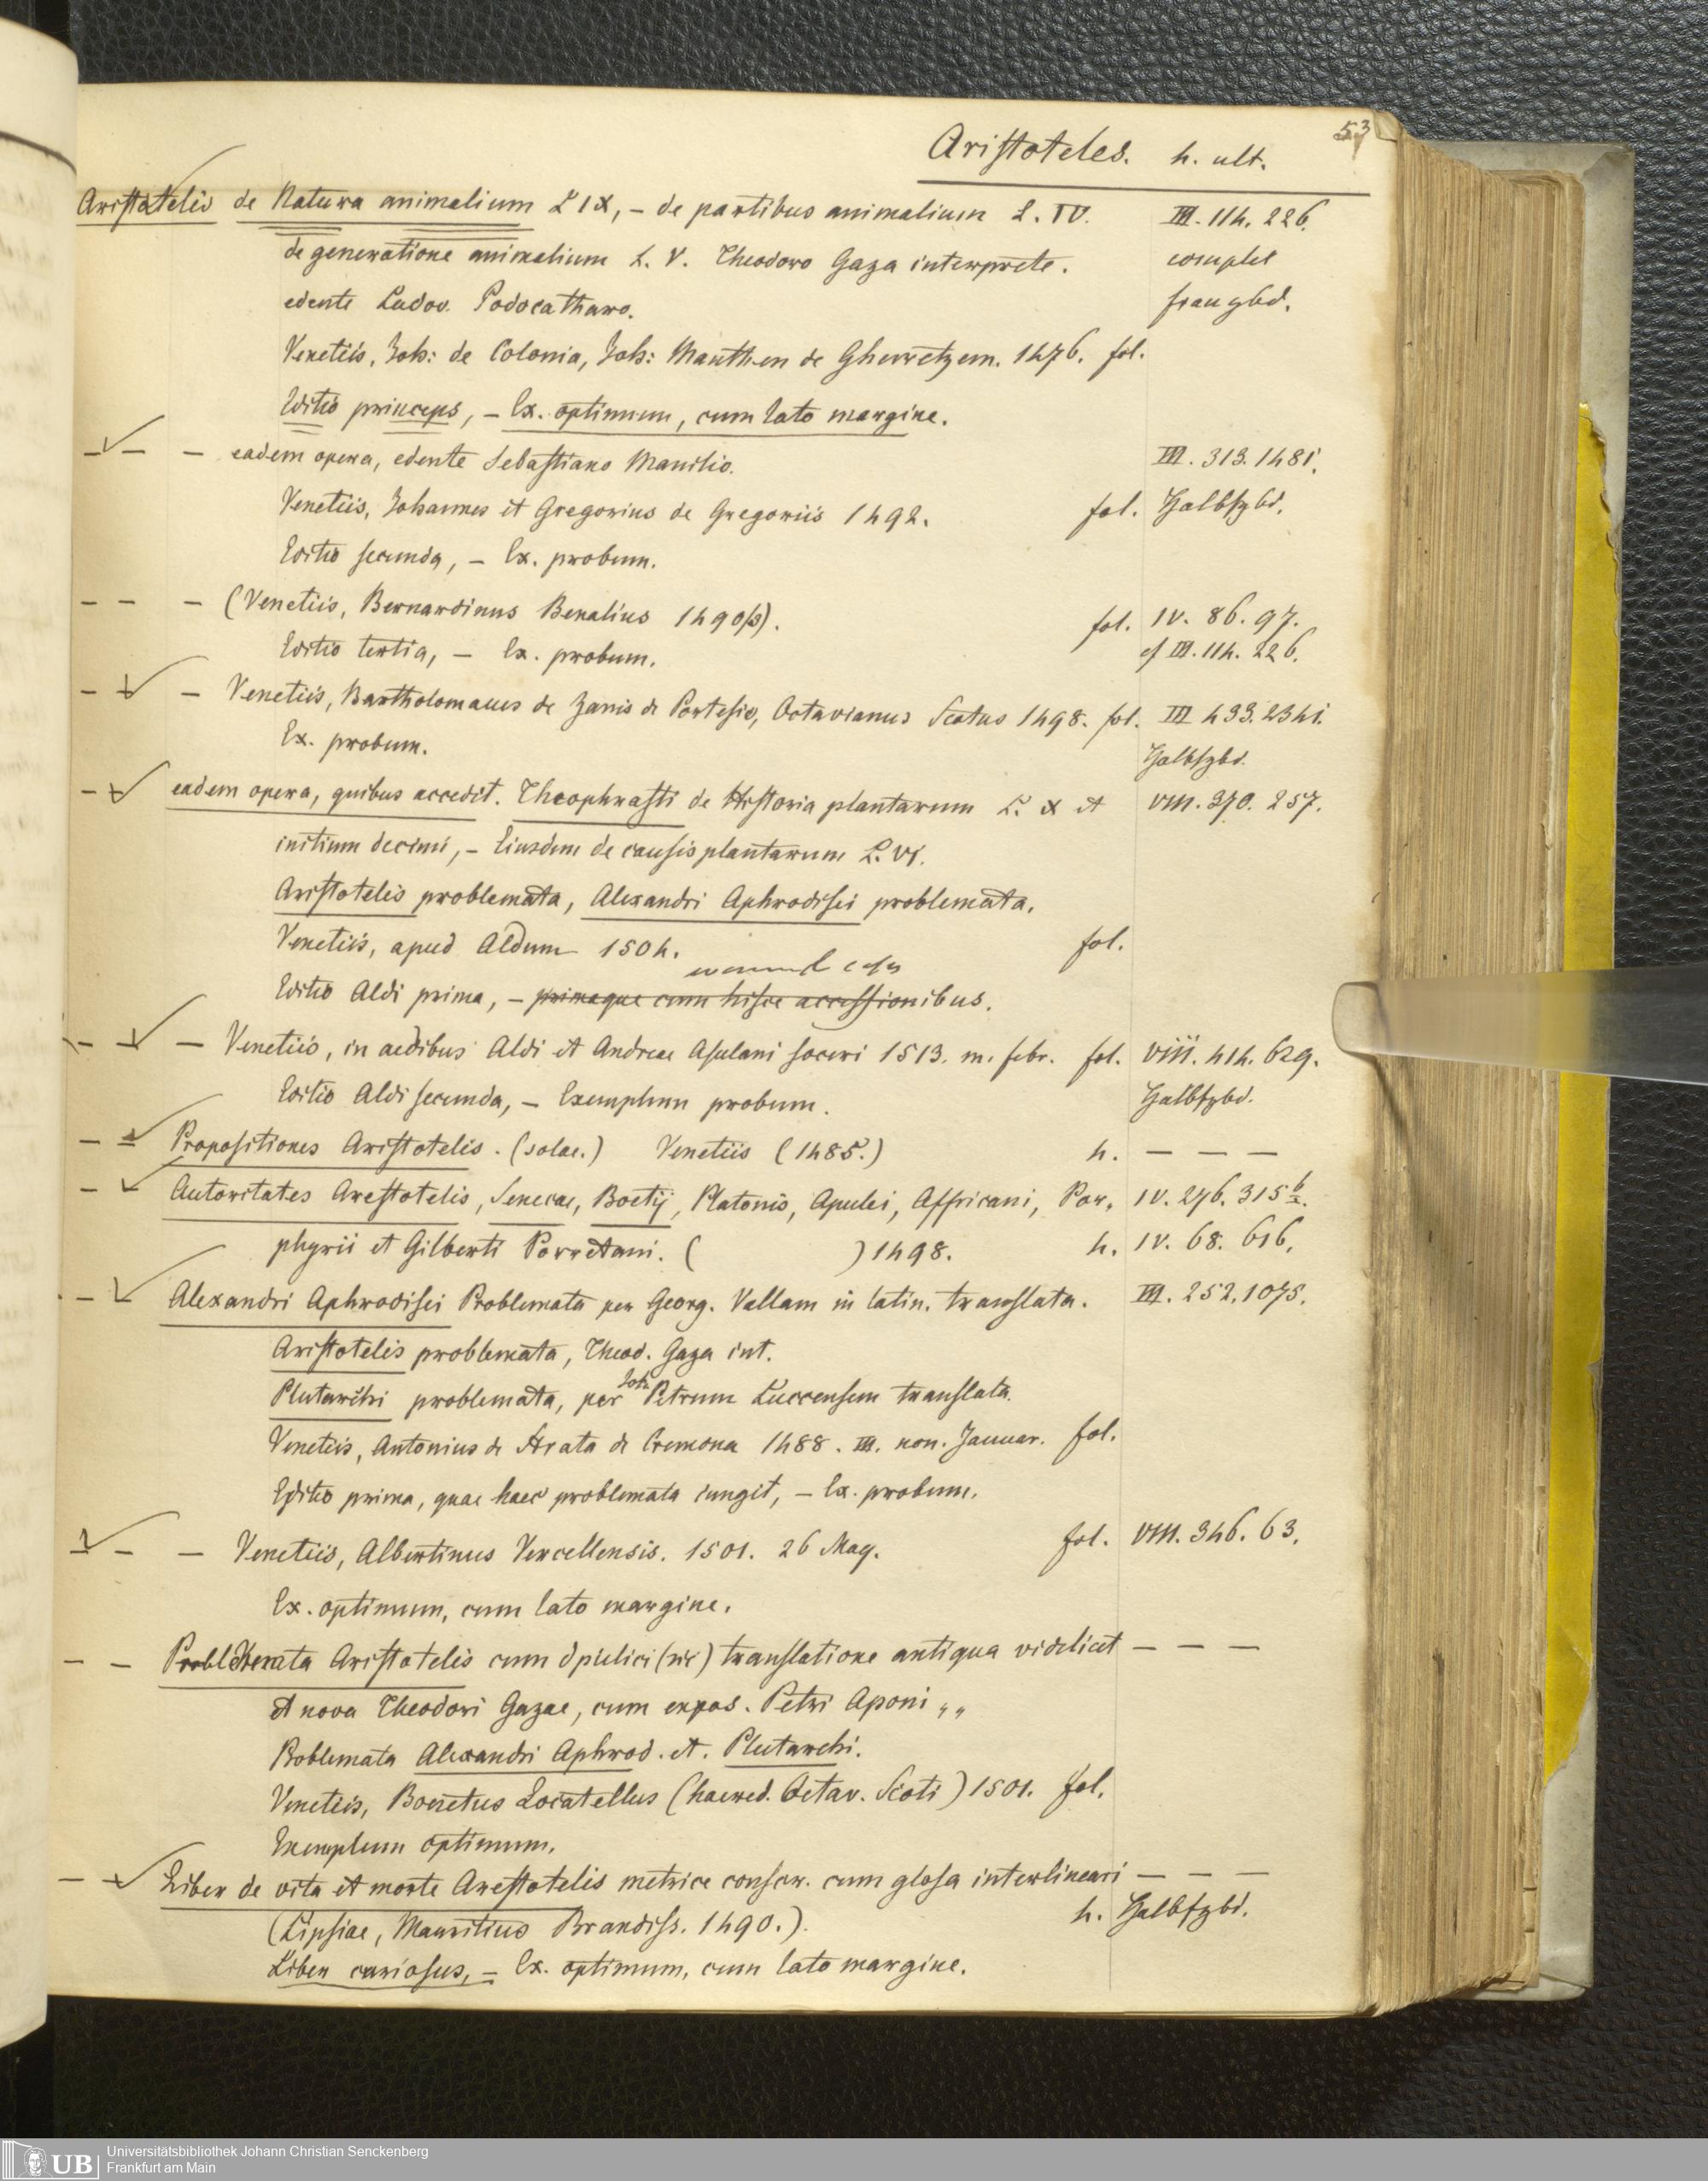 53
Aristoteles. 4. ult.
Aristotelis de Natura animalium L IX, – de partibus animalium L. IV. III. 114. 226.
de generatione animalium L. V. Theodoro Gaza interprete. complet
edente Ludov. Podocatharo. franzbd.
Venetiis, Joh: de Colonia, Joh: Manthen de Gherretzem. 1476. fol.
Editio princeps, – Ex. optimum, cum lato margine.
– – – eadem opera, edente Sebastiano Manilio. III. 313. 1481.
Venetiis, Johannes et Gregorius de Gregoriis 1492. fol. Halbfzbd.
Editio secunda, – Ex. probum.
– – – (Venetiis, Bernardinus Benalius 1490/3). fol. IV. 86. 97.
Editio tertia, – Ex. probum. cf III. 114. 226.
– – – Venetiis, Bartholomaeus de Zanis de Portesio, Octavianus Scotus 1498. fol. III 433. 2341.
Ex. probum. Halbfzbd.
– – eadem opera, quibus accedit. Theophrasti de Historia plantarum L. X et VIII. 370. 257.
initium decimi, – Eiusdem de causis plantarum L. VI.
Aristotelis problemata, Alexandri Aphrodisei problemata.
Venetiis, apud Aldum 1504. fol.
Editio Aldi prima, – primaque cum hisce accessionibus.
– – – Venetiis, in aedibus Aldi et Andreae Asulani soceri 1513. m. febr. fol. VIII. 414. 629.
Editio Aldi secunda, – Exemplum probum. Halbfzbd.
– – Propositiones Aristotelis. (solae.) Venetiis (1485.) 4. – – –
– – Autoritates Arestotelis, Senecae, Boetij, Platonis, Apulei, Affricani, Por- IV. 276. 315 b.
phyrii et Gilberti Porretani. ( ) 1498. 4. IV. 68. 616.
– – Alexandri Aphrodisei Problemata per Georg. Vallam in latin. translata. III. 252. 1075.
Aristotelis problemata, Theod. Gaza int.
Plutarchi problemata, per Joh. Petrum Luccensem translata.
Venetiis, Antonius de Strata de Cremona 1488. III. non. Januar. fol.
Editio prima, quae haec problemata iungit, – Ex. probum.
– – – Venetiis, Albertinus Vercellensis. 1501. 26 May. fol. VIII. 346. 63.
Ex. optimum, cum lato margine.
– – Problemata Aristotelis cum dpulici (sic) translatione antiqua videlicet – – –
et nova Theodori Gazae, cum expos. Petri Aponi „„
Problemata Alexandri Aphrod. et. Plutarchi.
Venetiis, Bonetus Locatellus (haered. Octav. Scoti) 1501. fol.
Exemplum optimum.
– – Liber de vita et morte Arestotelis metrice conscr. cum glosa interlineari – – –
(Lipsiae, Mauritius Brandiss. 1490.). 4. Halbfzbd.
Liber curiosus, – Ex. optimum, cum lato margine.
UB Universitätsbibliothek Johann Christian Senckenberg
Frankfurt am Main